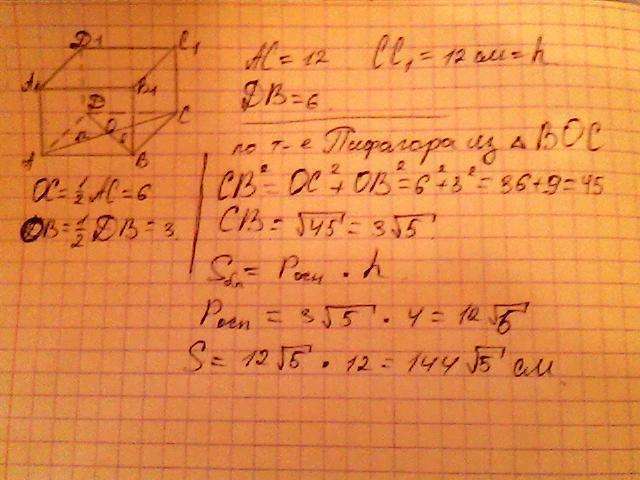 D1 C1
A1 B1
D
O C
A B
AC = 12 CC₁ = 12 см = h
DB = 6
по т-е Пифагора из △ BOC
OC = ½ AC = 6
OB = ½ DB = 3
CB² = OC² + OB² = 6² + 3² = 36 + 9 = 45
CB = √45 = 3√5
Sбп = Pосн · h
Pосн = 3√5 · 4 = 12√5
S = 12√5 · 12 = 144√5 см